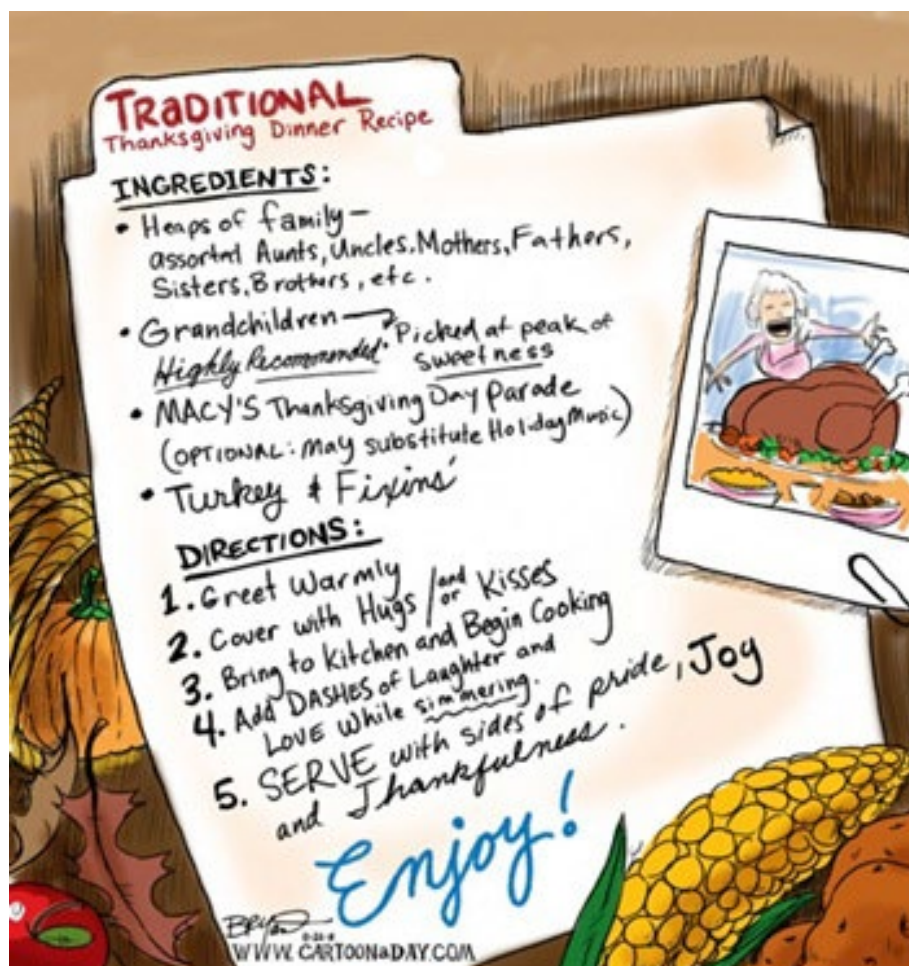 TRADITIONAL
Thanksgiving Dinner Recipe
INGREDIENTS:
• Heaps of family –
assorted Aunts, Uncles. Mothers, Fathers,
Sisters, Brothers, etc.
• Grandchildren → • Picked at peak of
Highly Recommended sweetness
• MACY'S Thanksgiving Day Parade
(OPTIONAL: may substitute Holiday Music)
• Turkey & Fixins'
DIRECTIONS:
1. Greet Warmly
2. Cover with Hugs and/or Kisses
3. Bring to Kitchen and Begin Cooking
4. Add DASHES of Laughter and
LOVE while simmering.
5. SERVE with sides of pride, Joy
and Thankfulness.
Enjoy!
WWW.CARTOONaDAY.COM